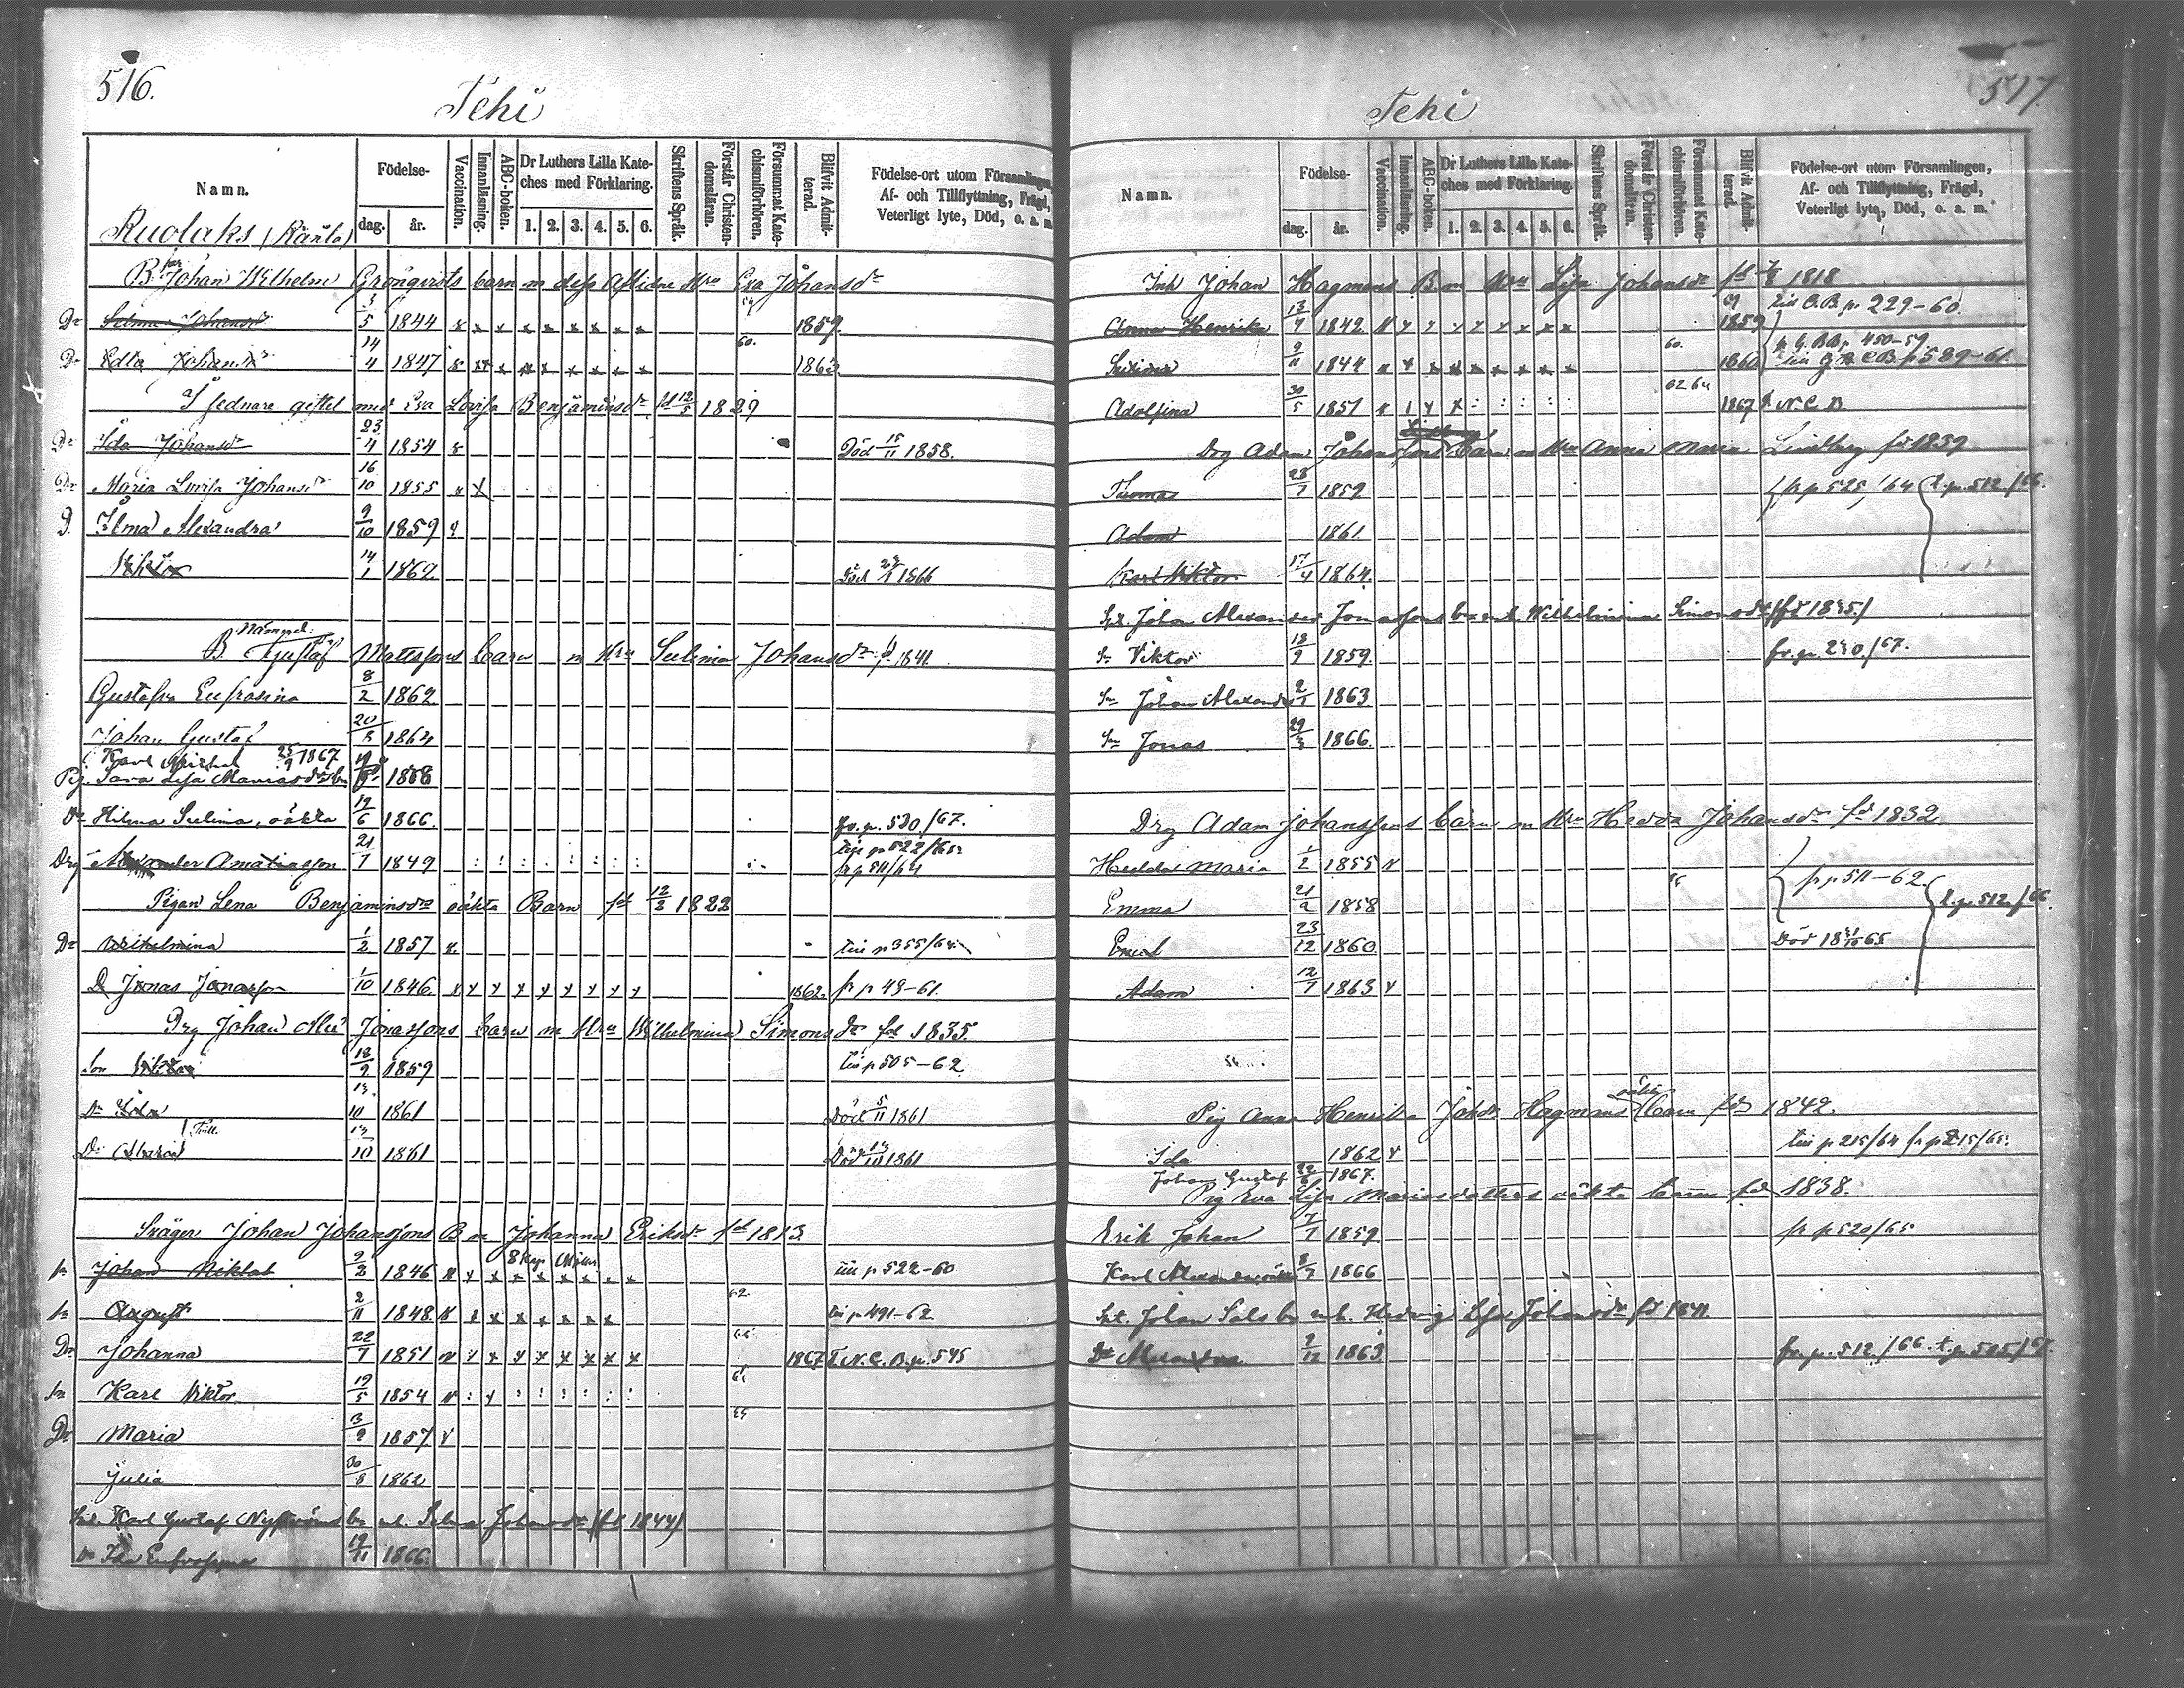 516.
Tehi
Namn.
Födelse-
dag.
år.
Vaccination.
Innanläsning.
ABC-boken.
Dr Luthers Lilla Kate-
ches med Förklaring.
1. 2. 3. 4. 5. 6.
Skriftens Språk.
Förstår Christen-
domsläran.
Försummat Kate-
chismiförhören.
Blifvit Admit-
terad.
Födelse-ort utom Församlingen,
Af- och Tillflyttning, Frägd,
Veterligt lyte, Död, o. a. m.
Ruolaks (Räula)
B Johan Wilhelm Grönqvists barn m dess Aflidne Hru Eva Johansdr
Dr Selma Johansdr 3/5 1844 1859
Dr Edla Johansdr 14/4 1847 60. 1863
I sednare giftet med Eva Lovisa Benjaminsdr fd 12/5 1829
Dr Ida Johansdr 23/4 1854 Död 15/11 1858.
Dr Maria Lovisa Johansdr 16/10 1855
D. Ilma Alexandra 9/10 1859
Viktor 14/1 1862 Död 1866
B. Gustaf Mattssons barn m Hru Sulima Johansdr fd 1841.
Gustafva Eufrosina 8/2 1862
Johan Gustaf 20/3 1864
Karl Michel 25/9 1867
Pig. Sara Lisa Mariasdr bn 1858
Dr Hilma Sulima, oäkta 12/6 1866. fr. p. 530/67.
till p 522/65
Drg Alexander Amatiasson 21/7 1849 fr p 511/64
Pigan Lena Benjaminsdrs oäkta Barn fd 12/2 1822
Dr Wilhelmina 1/2 1857 till p 355/64
D Jonas Jonasson 1/10 1846. 1862. fr p 49-61.
Drg Johan Alex Jonassons barn m Hru Wilhelmina Simonsdr fd 1835.
Son Viktor 18/9 1859 till p 505-62
Dr Ida 13/10 1861 Död 5/11 1861
Tvill.
Dr Maria 13/10 1861 Död 1861
Svåger Johan Johanssons B m Johanna Eriksdr fd 1813
Sn Johan Niklas 2/2 1846 till p 522-60
Sn August 2/11 1848 62 till p 491-62
Dr Johanna 22/7 1851 1867 T. N. C. B. p. 545
Sn Karl Viktor 19/5 1854
Dr Maria 3/9 1857
Julia 30/8 1862
Karl Gustaf Nyströms bn m h. Selma Johansdr (fd 1844)
Dr Ida Eufrosyna 19/11 1866.
517
Tehi
Namn.
Födelse-
dag.
år.
Vaccination.
Innanläsning.
ABC-boken.
Dr Luthers Lilla Kate-
ches med Förklaring.
1. 2. 3. 4. 5. 6.
Skriftens Språk.
Förstår Christen-
domsläran.
Försummat Kate-
chismiförhören.
Blifvit Admit-
terad.
Födelse-ort utom Församlingen,
Af- och Tillflyttning, Frägd,
Veterligt lyte, Död, o. a. m.
Inh Johan Hagmans B m Hru Lisa Johansdr fd 1818
Anna Henrika 13/7 1842 1859 till C. B p 229-60.
9/11 1844 60. 1860 p 589-61
Adolfina 30/5 1851 62 64 1867 N. C. B
Drg Adam Johanssons barn m Hru Anna Maria Lindberg fd 1839
Thomas 28/7 1859 fr p 525/64 t. p. 512/66.
Adam 1861
Karl Viktor 17/4 1864
Johan Alexander Jonassons bn m h. Wilhelmina Simonsdr (fd 1835)
Sn Viktor 18/9 1859 fr. p. 230/67.
Sn Johan Alexander 2/1 1863
Sn Jonas 29/3 1866
Drg Adam Johanssons barn m Hru Hedda Johansdr fd 1832.
Hedda Maria 1/2 1855 fr p 511-62
Emma 21/2 1858 t. p. 512/66
Emil 23/12 1860 Död 1865
Adam 12/7 1863
Pig Anna Henrika Johdr Hagmans oäkta barn fd 1842.
Ida 1862 till p 215/64 fr p 215/65.
Johan Gustaf 1867.
Pig Eva Lisa Mariasdotters oäkta barn fd 1838.
Erik Johan 7/7 1859 fr p 520/65
Karl Alexander oäkta 1866
Johan Sals bn m h. Hedvig Lisa Johansdr fd 1841
Dr Alexandra 9/12 1863 fr. p. 512/66. t. p. 505/67